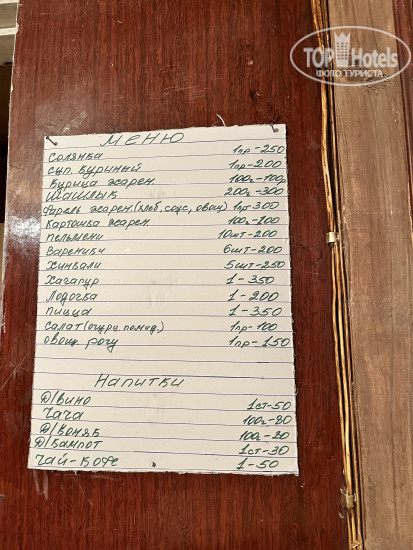 TOP Hotels
ФОТО ТУРИСТА
Меню
Солянка 1пр-250
Суп. Куринный 1пр-200
Курица жарен. 100г-100р
Шашлык 200г-300
Форель жарен.(хлеб, соус, овощ) 1пр-300
Картошка жарен. 100г-100
Пельмени 10шт-200
Вареники 6шт-200
Хинкали 5шт-250
Хагапур 1-350
Лодочка 1-200
Пицца 1-350
Салат (огур. помид.) 1пр-100
Овощ. рагу 1пр-150
Напитки
Д/Вино 1ст-50
Чача 100г-80
Д/Коняк 100г-80
Д/Кампот 1ст-30
Чай-Кофе 1-50